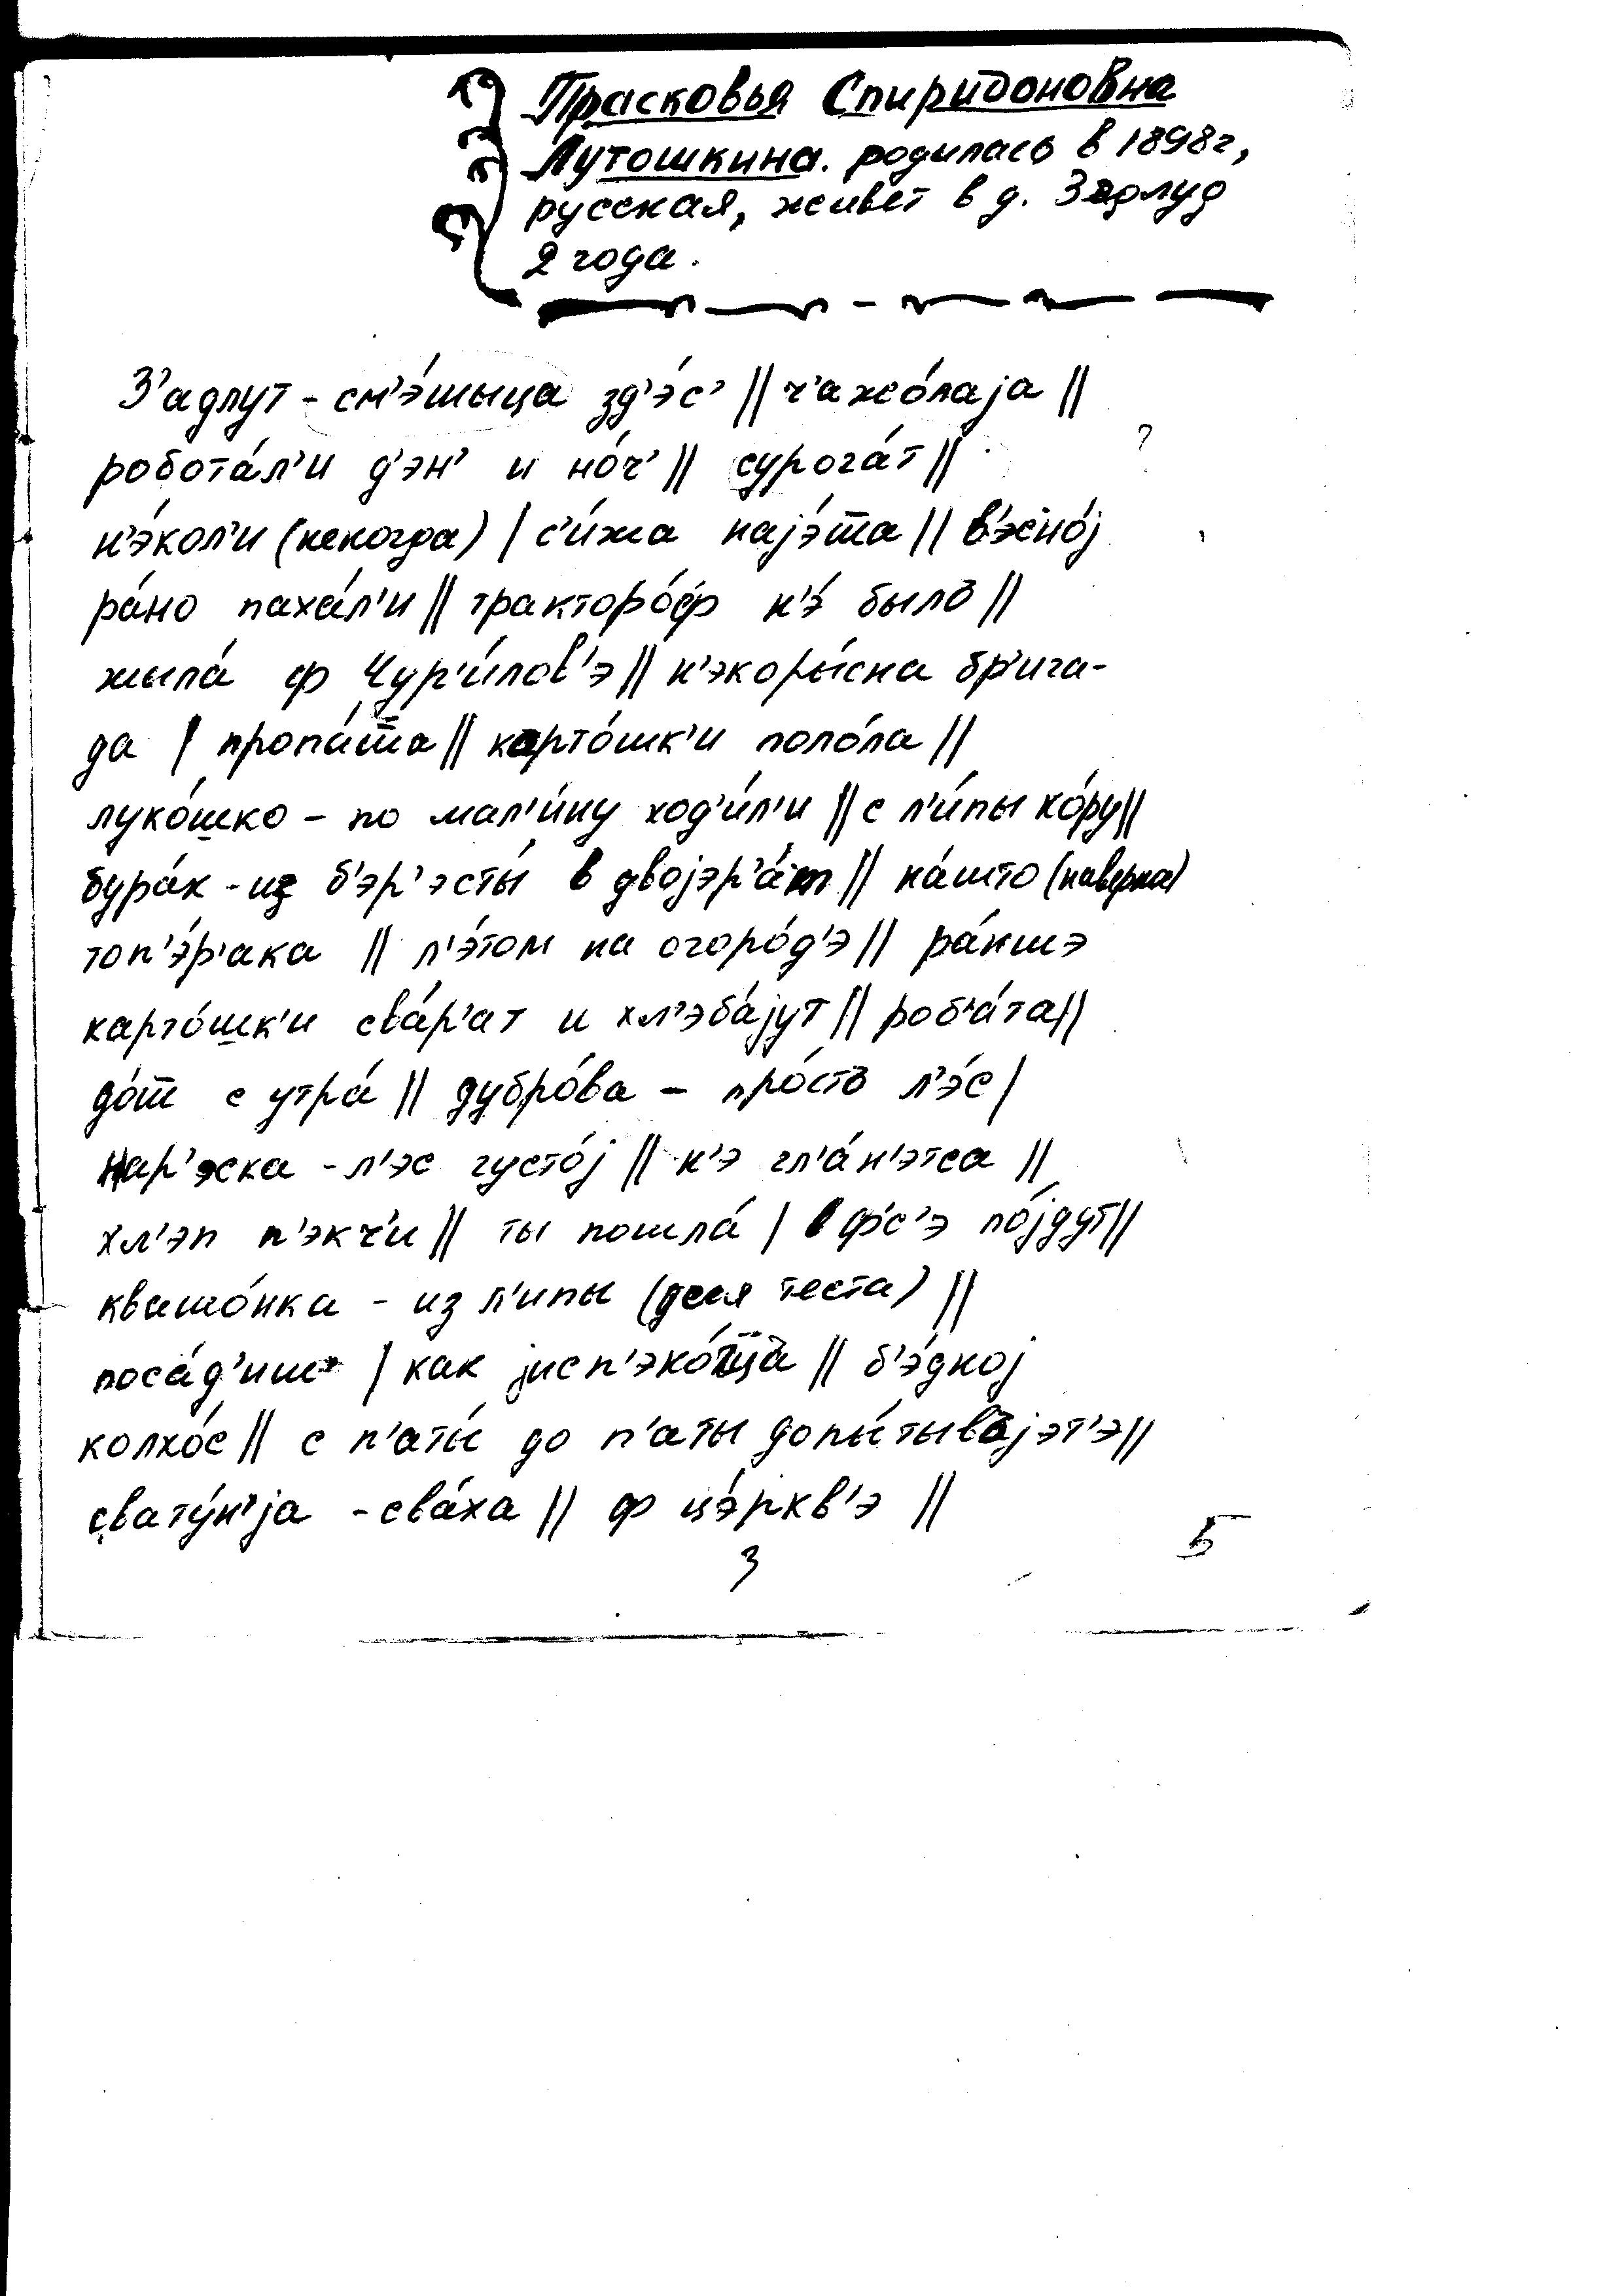 Прасковья Спиридоновна
Лутошкина. родилась в 1898г,
русская, живет в д. Задлуд
2 года.
З'адлут - см'э́шыца зд'э́с' || ч'ажо́лаjа ||
робота́л'и д'эн' и но́ч' || сурога́т ||
?
н'э́кол'и (некогда) | с'и́жа наjэ́т̅а || в'эсно́j
ра́но паха́л'и || трактороф́ н'э́ былъ ||
жыла́ ф Чур'и́лов'э || н'экоры́сна бр'ига-
да | пропа́т̅а || карто́шк'и поло́ла ||
луко́шко - по мал'и́ну ход'и́л'и || с л'и́пы ко́ру ||
бура́к - из б'эр'эсты́ в двоjэр'а́т || на́што (наверна)
топ'э́р'ака || л'э́том на огоро́д'э || ра́ншэ
карто́шк'и сва́р'ат и хл'эба́jут || роб'а́та ||
до́т̅ с утра́ || дубро́ва - про́стъ л'э́с |
нар'эска - л'эс густо́j || н'э гл'а́н'этса ||
хл'эп п'экч'и || ты пошла́ | в ф'с'э по́jдут ||
квашо́нка - из л'ипы (для теста) ||
поса́д'иш | как jисп'эко́тца || б'э́дноj
колхо́с || с п'аты́ до п'аты допы́тываjэт'э ||
свату́н'jа - сва́ха || ф цэ́ркв'э ||
3
5